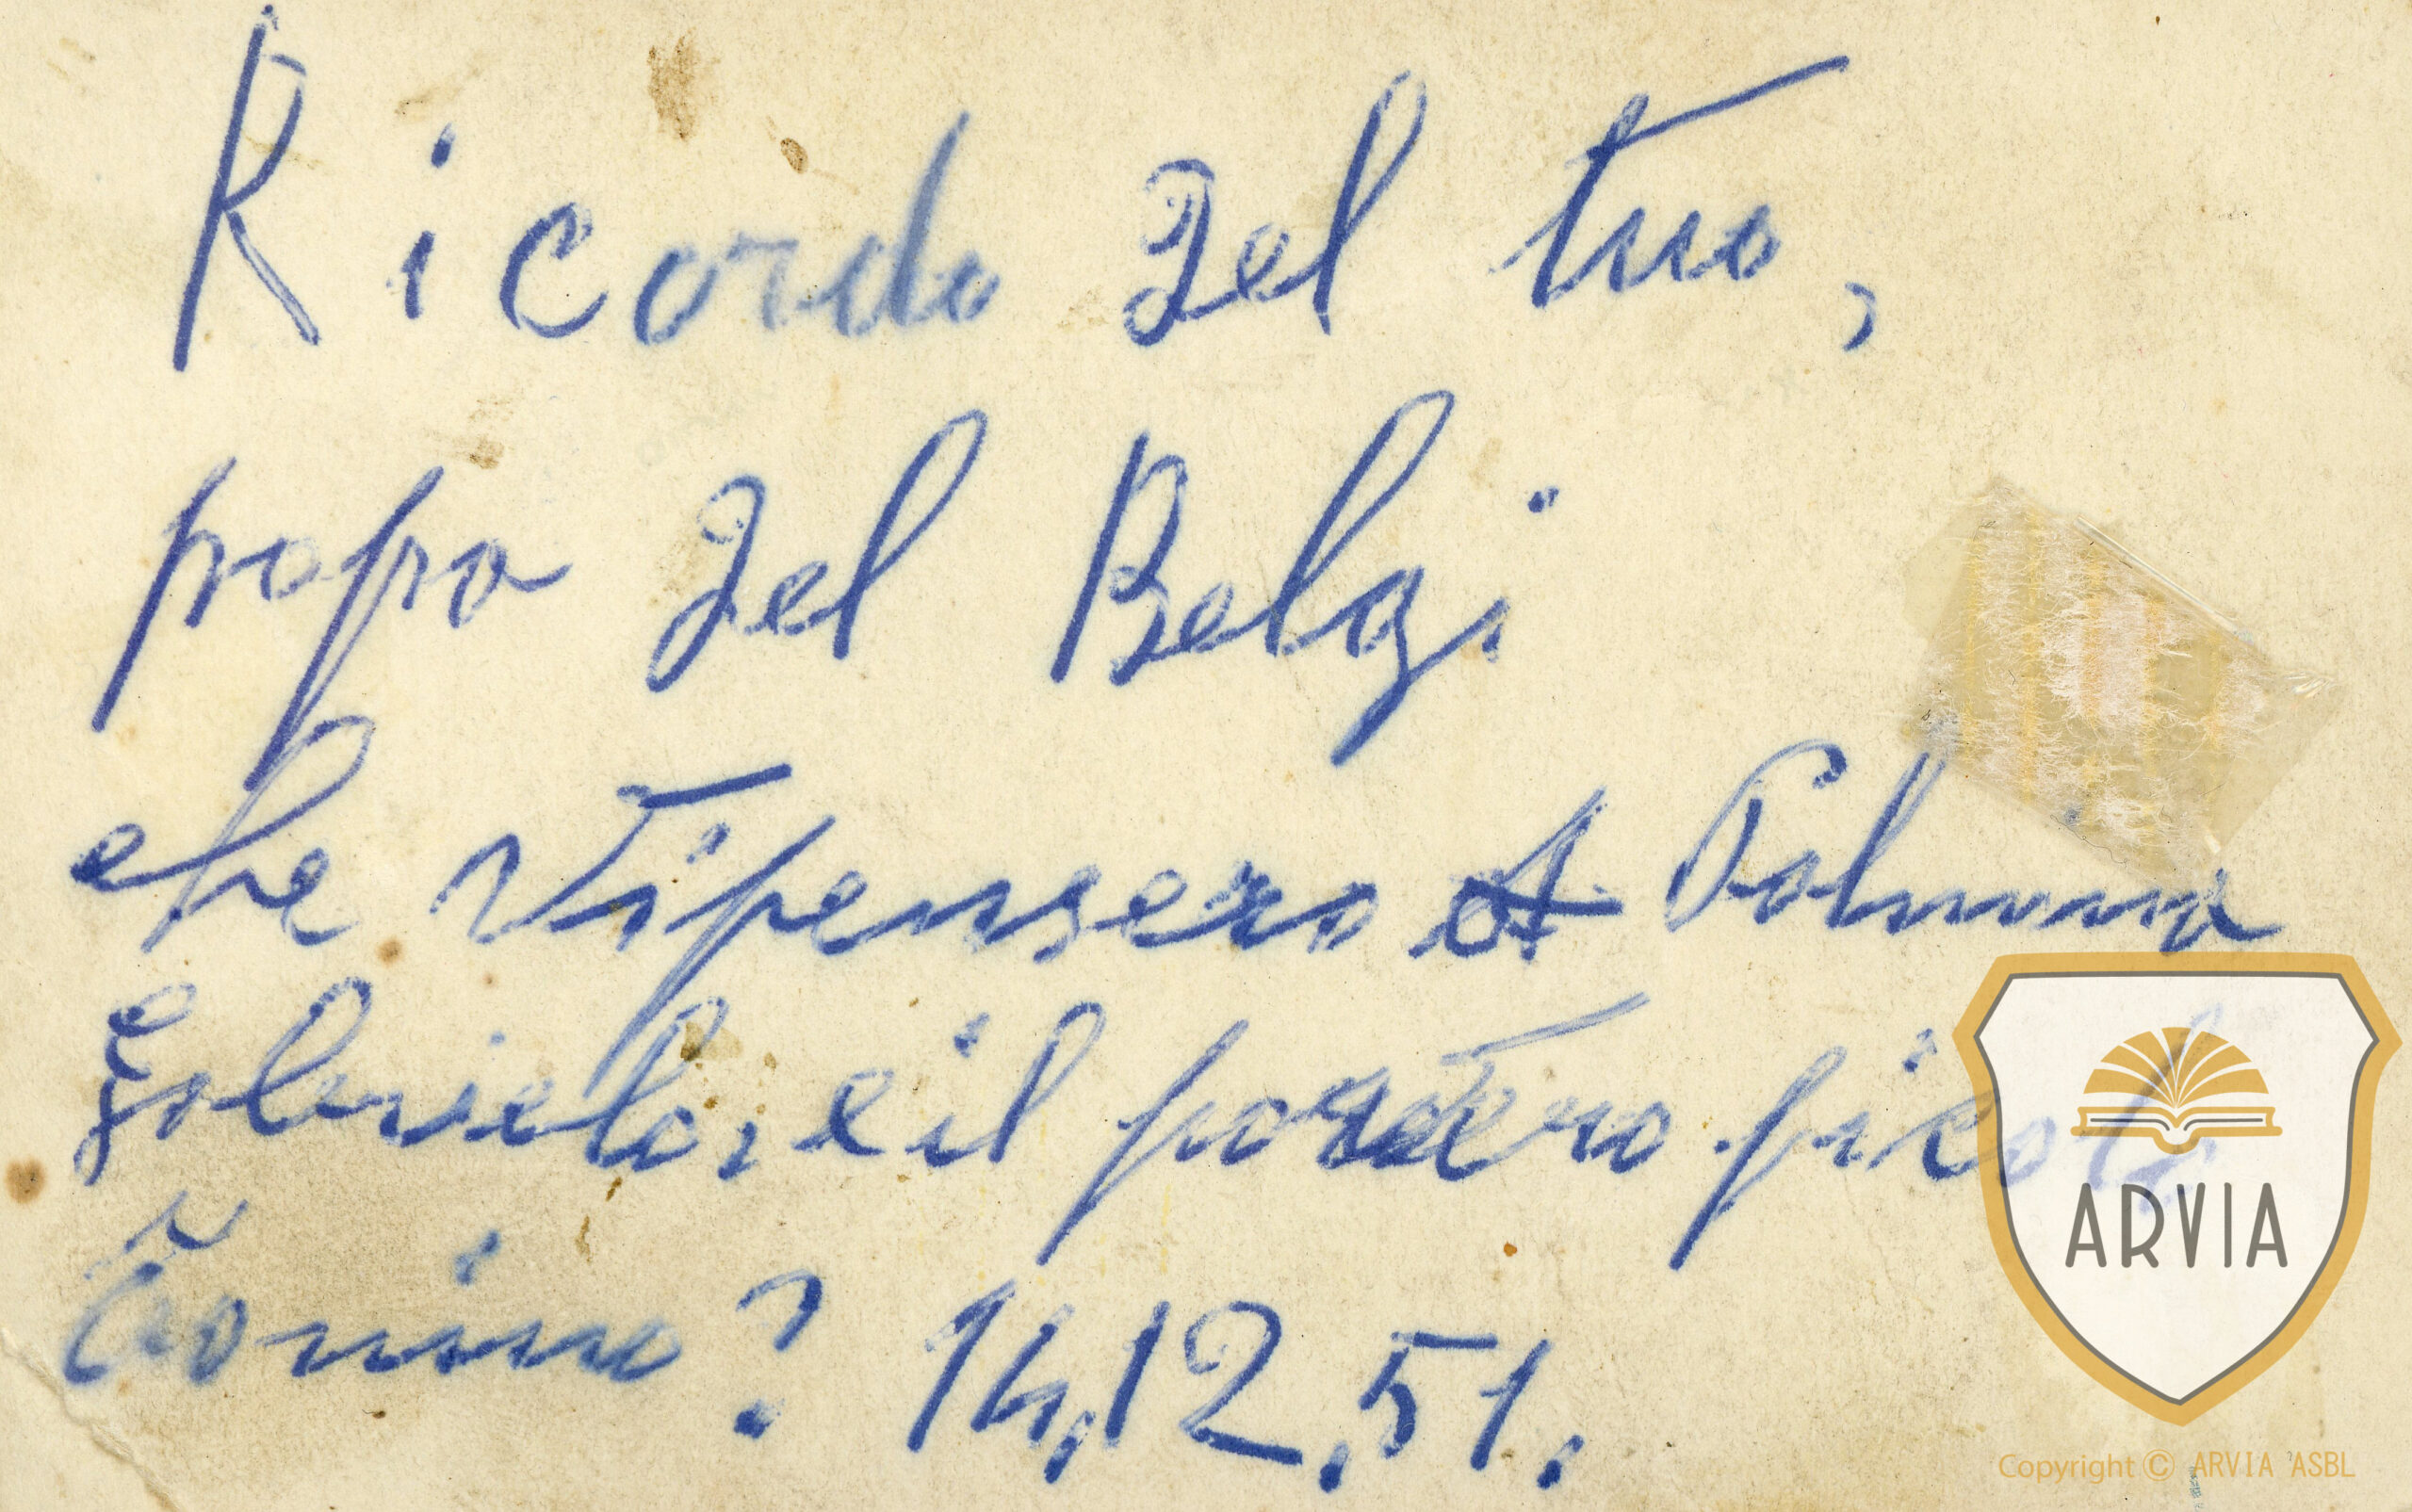 Ricordo del tuo,
papa del Belgi
che Vipensero A Palmina
Gabriela, e il postro picol
Tonino? 14,12.51.
ARVIA
Copyright © ARVIA ASBL